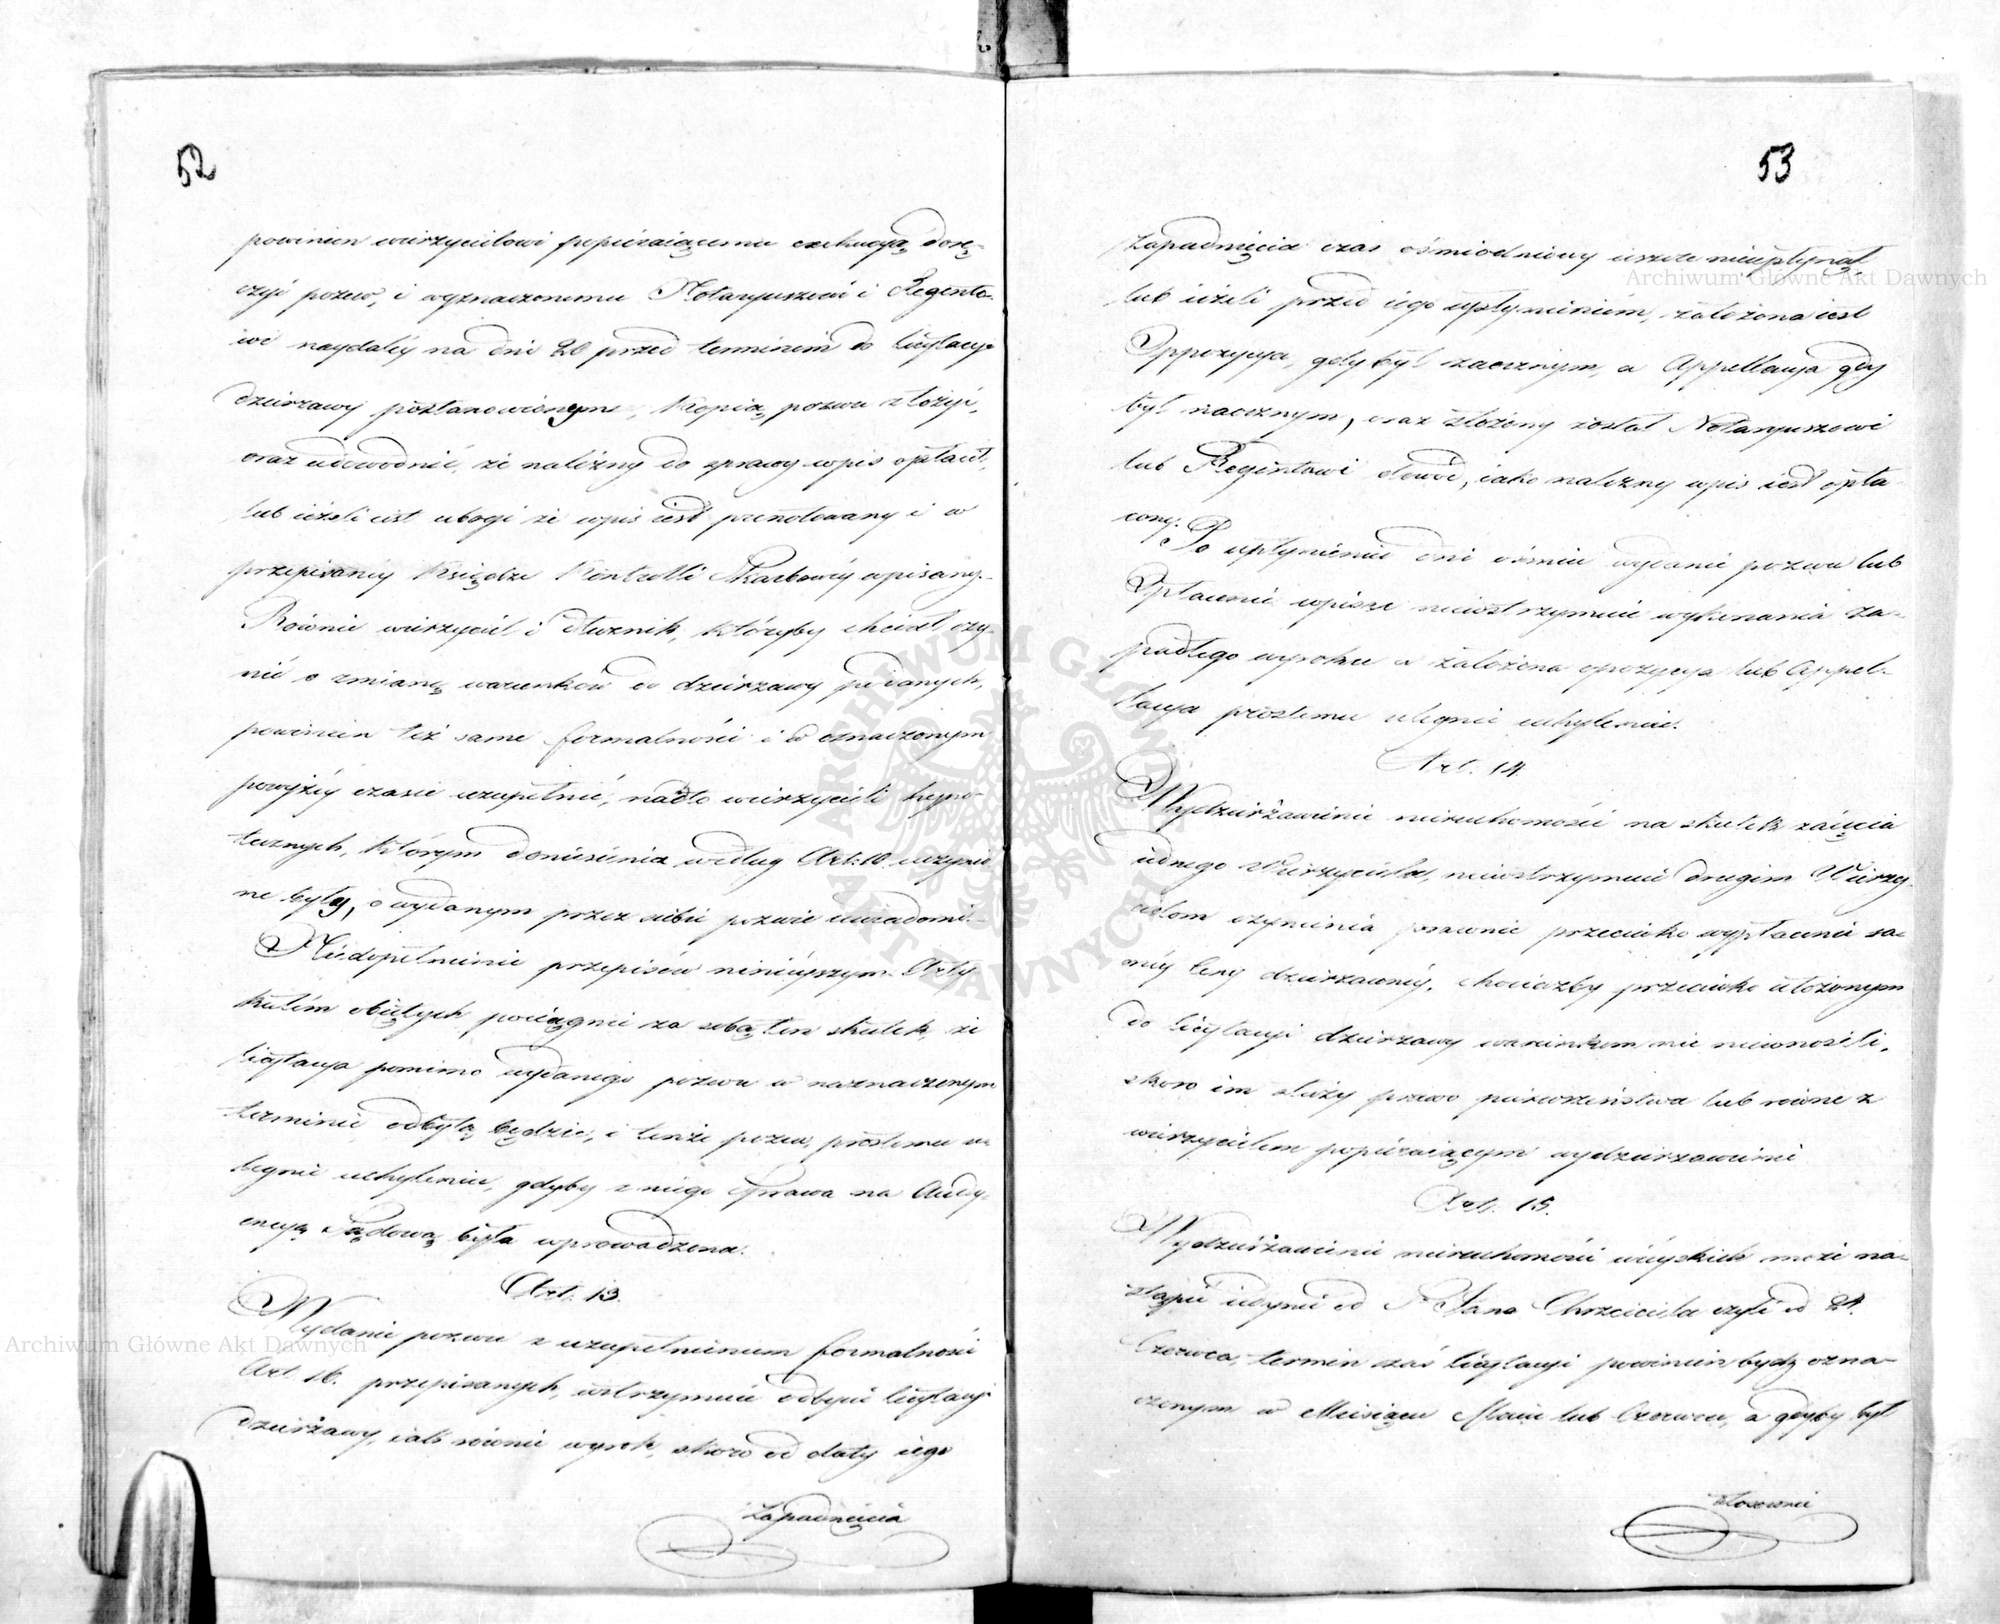 52
powinien wierzycielowi popieraiącemu exekucyą dorę-
czyć pozew, i wyznaczonemu Notaryuszowi i Regento-
wi naydaléy na dni 20 przed terminem do licytacyi
dzierżawy postanowionym, kopią pozwu złożyć,
oraz udowodnić, że należny do sprawy wpis opłacił,
lub ieżeli iest ubogi że wpis iest prenotowany i w
przepisaney Księdze Kontrolli Skarbowéy wpisany.
Równie wierzyciel i dłużnik, któryby chciał czy-
nić o zmianę warunków do dzierżawy podanych,
powinien też same formalności i w oznaczonym
powyżéy czasie uzupełnić, nadto wierzycieli hypo-
tecznych, którym doniesienia według Art: 10 uczynio
ne były, o wydanym przez siebie pozwie uwiadomi.
Niedopełnienie przepisów ninieyszym Arty
kułem obiętych pociągnie za sobą ten skutek, że
licytacya pomimo wydanego pozwu w naznaczonym
terminie odbytą będzie, i tenże pozew, prostemu u-
legnie uchyleniu, gdyby z niego sprawa na Audy-
encyą Sądową była wprowadzona.
Art. 13.
Wydanie pozwu z uzupełnieniem formalności
Art. 16. przepisanych, wstrzymuie odbycie licytacyi
dzierżawy, iak równie wyrok, skoro od daty iego
Zapadnięcia
53
Zapadnięcia czas ośmiodniowy ieszcze nieupłynął
lub ieżeli przed iego upłynieniem, założona iest
Oppozycya, gdy był zaocznym, a Appellacya gdy
był naocznym, oraz złożony został Notaryuszowi
lub Regentowi dowód, iako należny wpis iest opła
cony.
Po upłynieniu dni ośmiu wydanie pozwu lub
Opłacenie wpisu niewstrzymuie wykonania za-
padłego wyroku a założona opozycya lub Appel-
lacya prostemu ulegnie uchyleniu.
Art. 14.
Wydzierżawienie nieruchomości na skutek zaięcia
iednego Wierzyciela, niewstrzymuie drugim Wierzy-
cielom czynienia prawnie przeciwko wypłacenia sa-
méy Ceny dzierżawnéy, chociażby przeciwko ułożonym
do licytacyi dzierżawy warunkom nic niewnosili,
skoro im służy prawo pierwszeństwa lub równe z
wierzycielem popieraiącym wydzierżawienie
Art. 15.
Wydzierżawienie nieruchomości wieyskich może na-
stąpić iedynie od S. Jana Chrzciciela czyli od 24.
Czerwca, termin zaś licytacyi powinien bydź ozna-
czonym w Miesiącu Maiu lub Czerwcu, a gdyby był